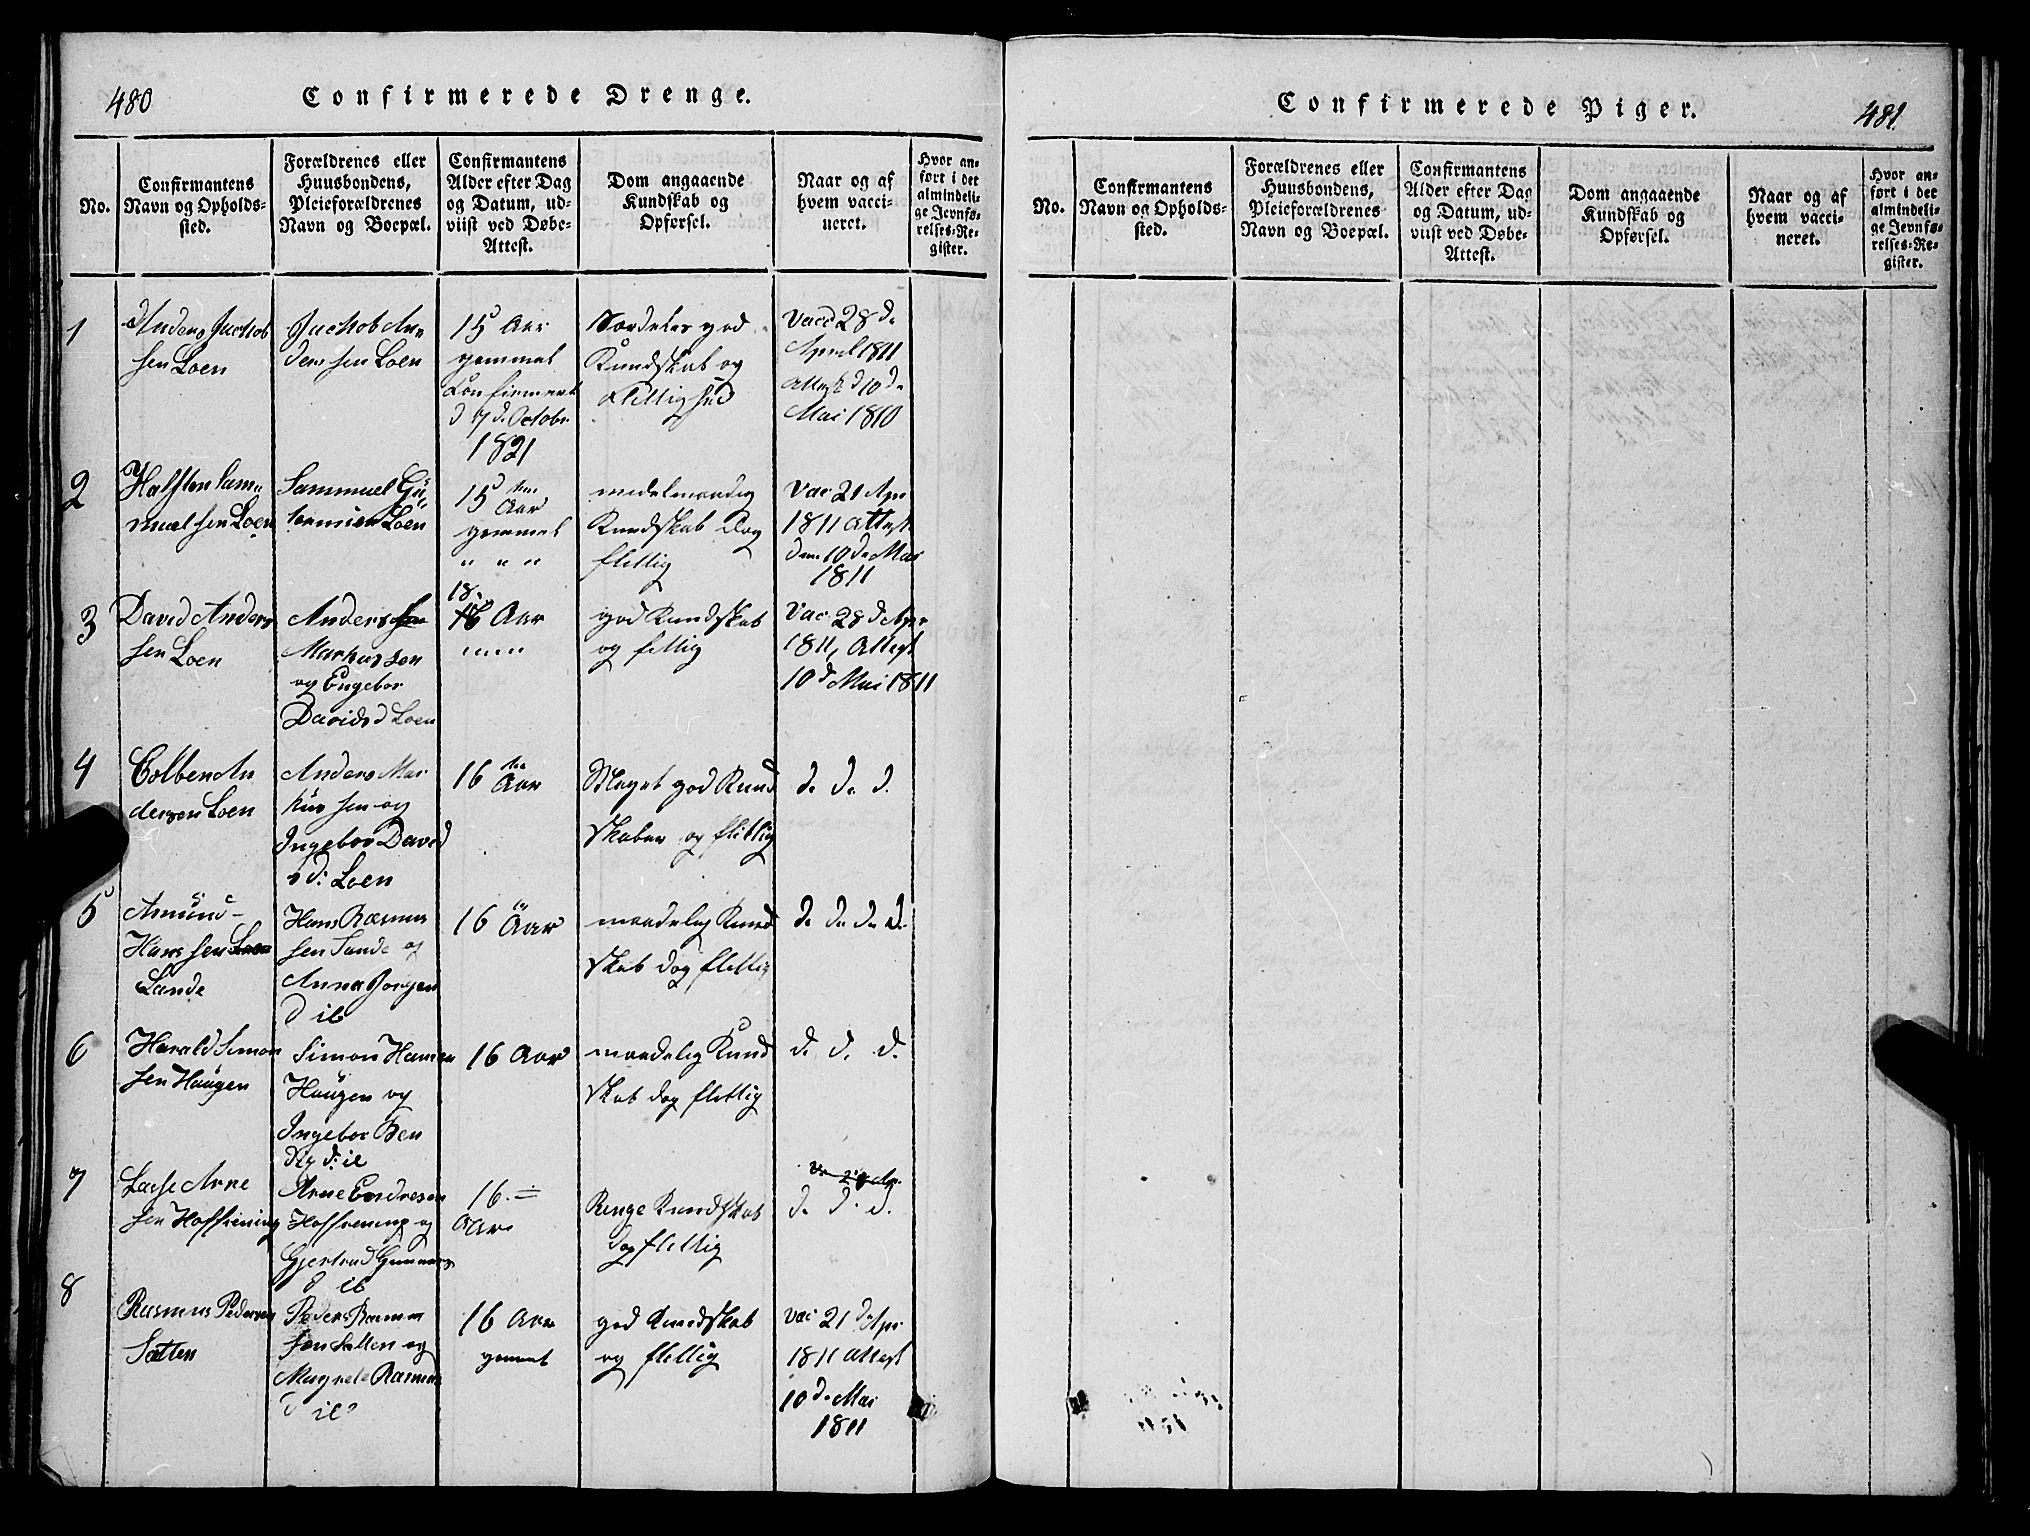 480
Confirmerede Drenge.
No.
Confirmantens
Navn og Opholds-
sted.
Forældrenes eller
Huusbondens,
Pleieforældrenes
Navn og Boepæl.
Confirmantens
Alder efter Dag
og Datum, ud-
viist ved Døbe-
Attest.
Dom angaaende
Kundskab og
Opførsel.
Naar og af
hvem vacci-
neret.
Hvor an-
ført i det
almindeli-
ge Jevnfø-
relses-Re-
gister.
1
Anders Jachob
sen Loen
Jachob An-
dersen Loen
15 Aar
gammel
Confirmert
d 7 d. Octobr
1821
Særdeles god
Kundskab og
Flittighed
Vacc 28 d.
April 1811
Attest d 10 d.
Mai 1810
2
Halsten Sam-
muelsen Loen
Sammuel
Loen
15 Aar
gammel
" " "
medelmaadig
Kundskab Dog
flittig
Vac 21 Apr
1811 Attest
den 10 d. Mai
1811
3
David Anders
sen Loen
Anders
Markussen
og Engebor
Davidsd Loen
18.
16 Aar
" " "
god Kundskab
og flittig
Vac 28 d Apr
1811, Attest
10 d Mai 1811
4
Colben An
dersen Loen
Anders Mar
kussen og
Ingebor David
sd: Loen
16 Aar
Meget god Kund
skaber og flittig
d. d. d.
5
Asmund
Hanssen Loen
Sande
Hans Rasmus
sen Sande og
Anna Jørgen
d ib
16 Aar
maadelig Kund
skab dog flittig
d. d. d. d.
6
Harald Simon
sen Haugen
Simon Hansen
Haugen og
Ingebor Ben
d: ib
16 Aar
maadelig Kund
skab dog flittig
d. d. d.
7
Lasse Arne
sen Hoffrening
Arne Endresen
Hoffrening og
Gjertrud Gunnars
d ib
16. =
Aar
Ringe Kundskab
dog flittig
d. d. d.
8
Rasmus Pedersen
Sætten
Peder Rasmu
sen Sætten og
Magnete Rasmus
d ib
16 Aar
gammel
god Kundskab
og flittig
Vac 21 d. Apr
1811 Attest
10 d. Mai
1811
Confirmerede Piger.
481.
No.
Confirmantens
Navn og Opholds-
sted.
Forældrenes eller
Huusbondens,
Pleieforældrenes
Navn og Boepæl.
Confirmantens
Alder efter Dag
og Datum, ud-
viist ved Døbe-
Attest.
Dom angaaende
Kundskab og
Opførsel.
Naar og af
hvem vacci-
neret.
Hvor an-
ført i det
almindeli-
ge Jevnfø-
relses-Re-
gister.